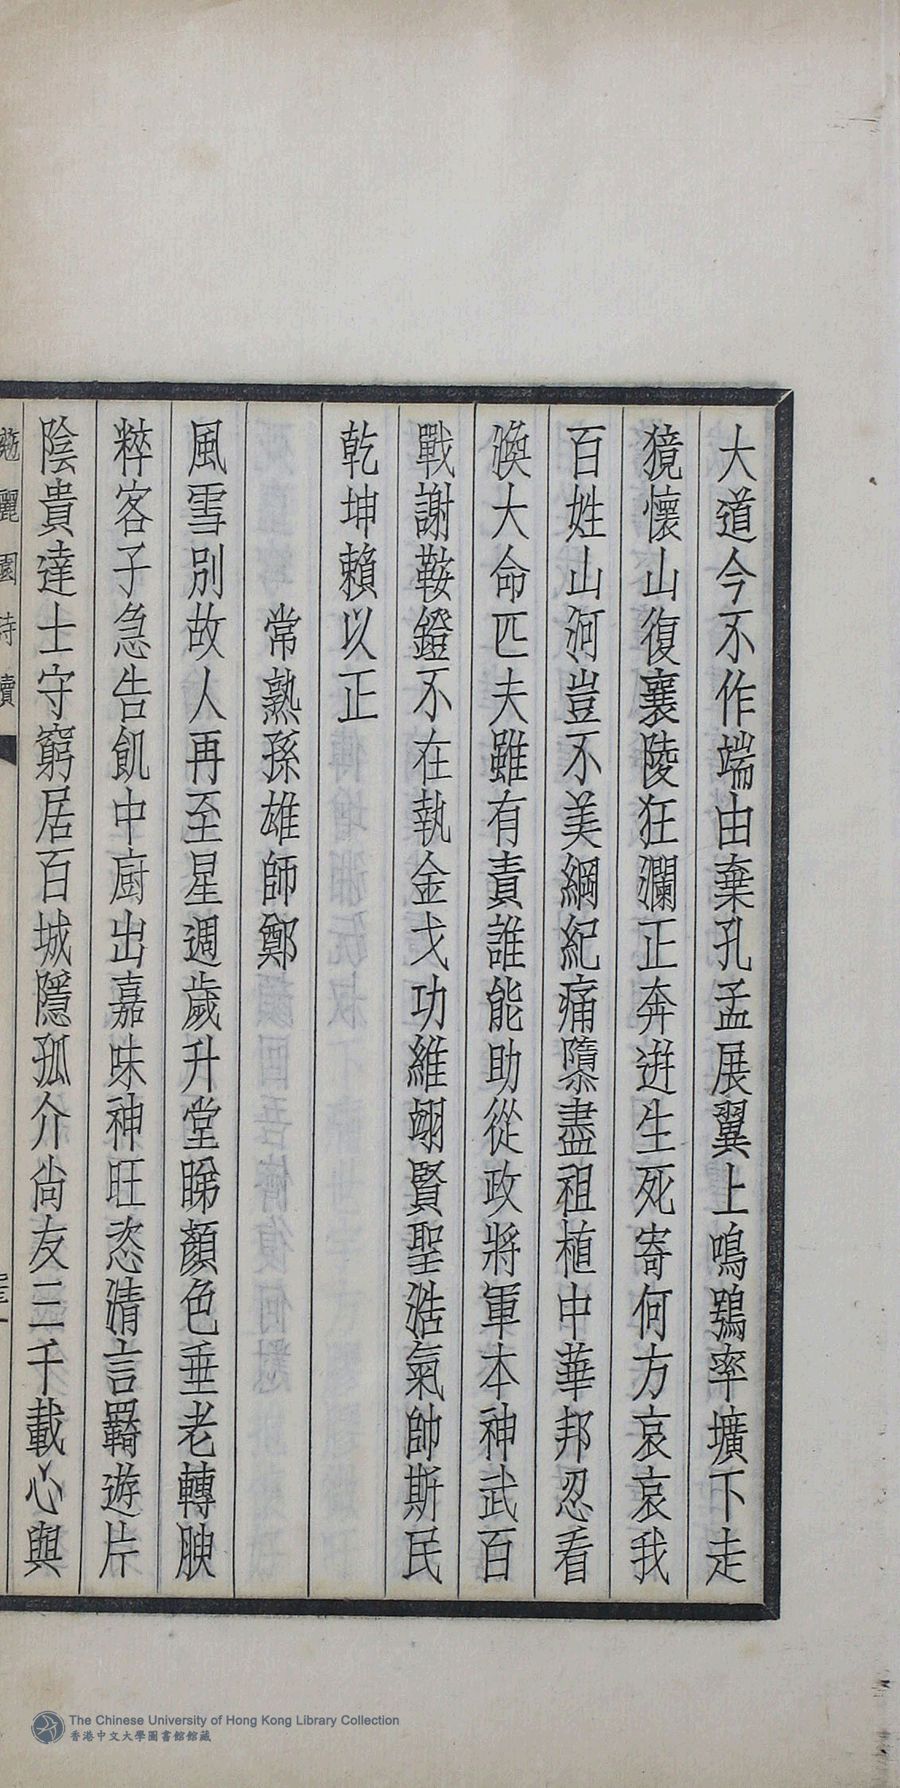 大道今不作端由棄孔孟展翼上鳴鶚率壙下走
獍懷山復襄陵狂瀾正奔逬生死寄何方哀哀我
百姓山河豈不美綱紀痛隳盡祖植中華邦忍看
渙大命匹夫雖有責誰能助從政將軍本神武百
戰謝鞍鐙不在執金戈功維翊賢聖浩氣帥斯民
乾坤賴以正
常熟孫雄師鄭
風雪別故人再至星週歲升堂睇顏色垂老轉腴
粹客子急告飢中厨出嘉味神旺恣清言羈遊片
陰貴達士守窮居百城隱孤介尙友三千載心與
麗園詩續
The Chinese University of Hong Kong Library Collection
香港中文大學圖書館館藏